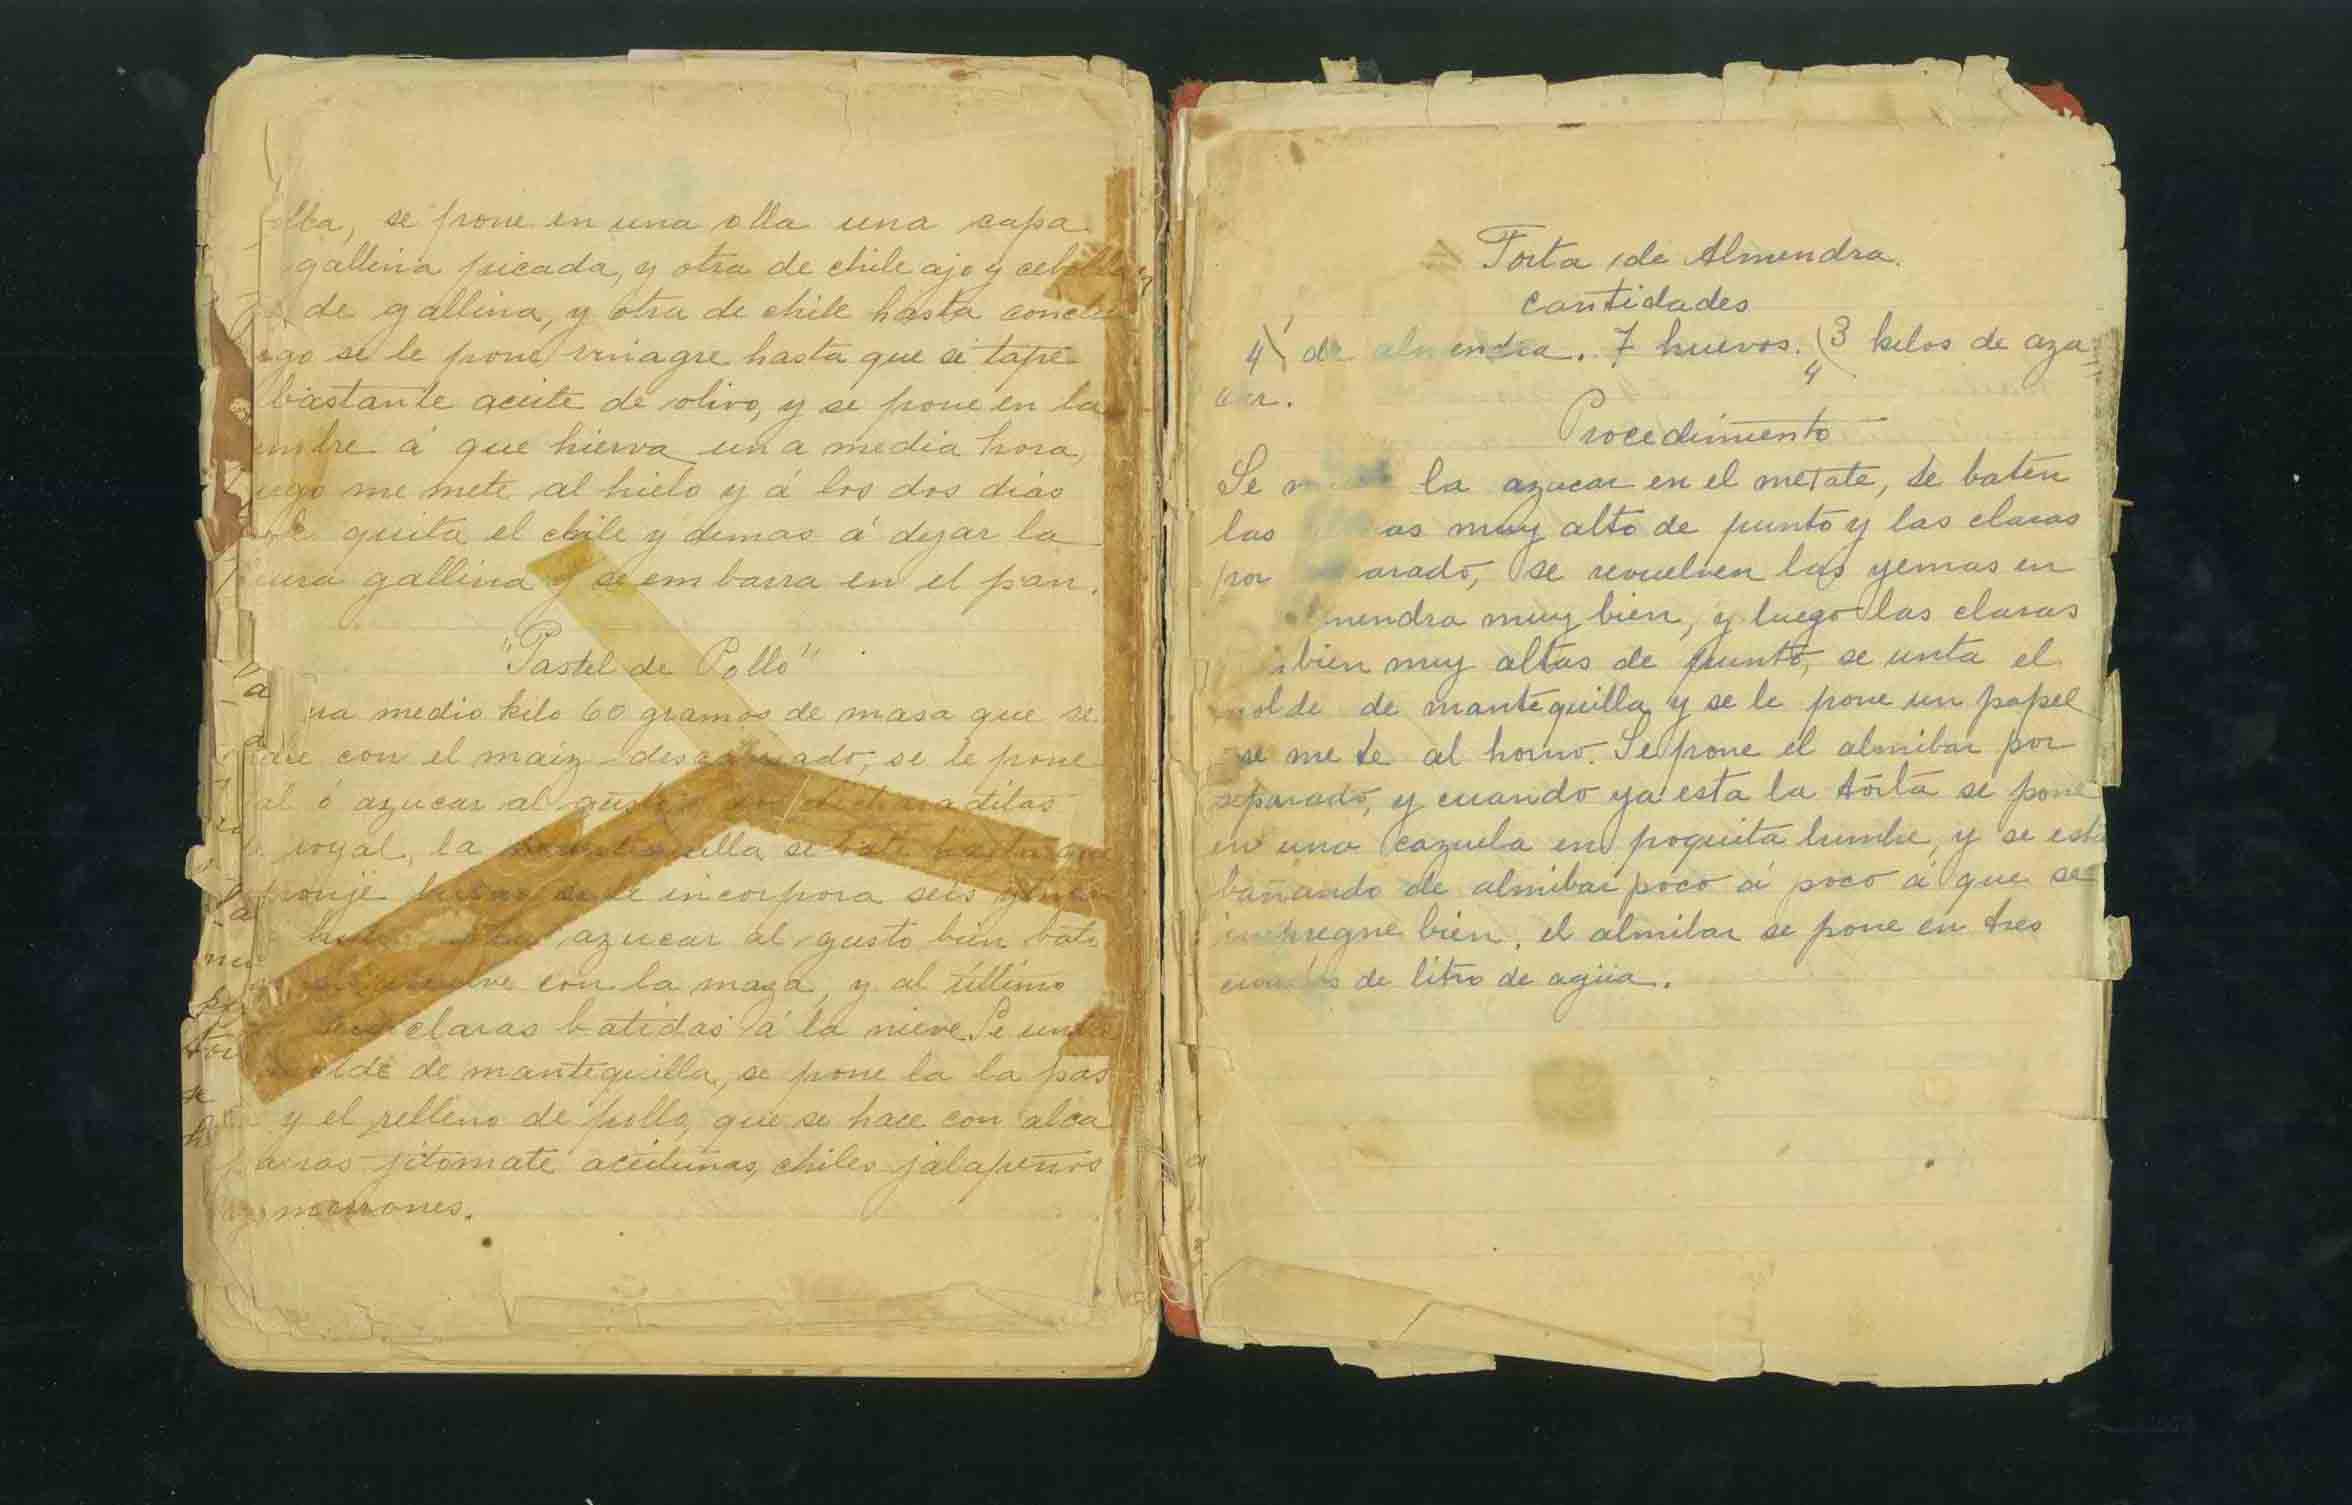 olla, se pone en una olla una capa
gallina picada, y otra de chile ajo y cebolla
de gallina, y otra de chile hasta conclu
ego se le pone vinagre hasta que se tape
bastante aceite de olivo, y se pone en la
umbre á que hierva una media hora,
uego me mete al hielo y á los dos dias
se le quita el chile y demas á dejar la
pura gallina y se embarra en el pan.
"Pastel de Pollo"
ra medio kilo 60 gramos de masa que se
hace con el maiz do, se le pone
al ó azucar al gusto
royal, la mantequilla se bate hasta que
ponje se le incorpora seis yemas
azucar al gusto bien bati
con la maza, y al último
claras batidas á la nieve. Se unta
molde de mantequilla, se pone la la pas
y el relleno de pollo, que se hace con alca
parras jitomate aceitunas, chiles jalapeños
y morrones.
Torta de Almendra.
Cantidades
1/4 de almendra. 7 huevos. 3/4 kilos de azu
car.
Procedimiento
Se la azucar en el metate, se baten
las as muy alto de punto y las claras
por arado, se revuelven las yemas en
almendra muy bien, y luego las claras
bien muy altas de punto, se unta el
molde de mantequilla y se le pone un papel
se mete al horno. Se pone el almibar por
separado, y cuando ya esta la torta se pone
en una cazuela en poquita lumbre, y se esta
bañando de almibar poco á poco á que se
impregne bien. el almibar se pone en tres
cuartos de litro de agua.